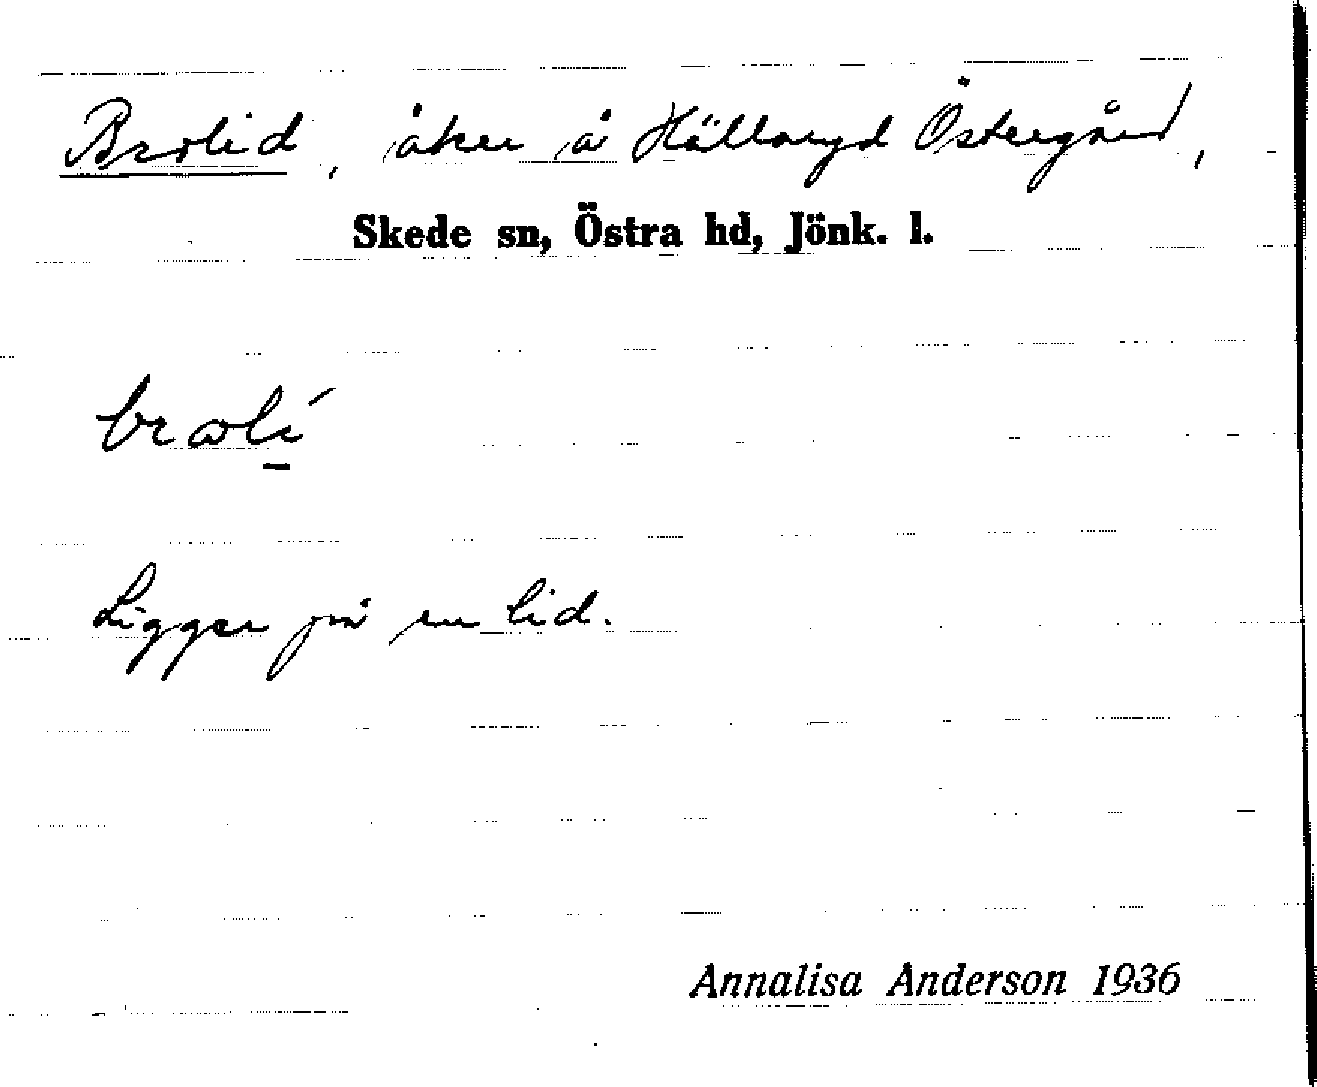 Brolid, åker å Hällaryd Östergård,
Skede sn, Östra hd, Jönk. l.
Ligger på en lid.
Annalisa Anderson 1936